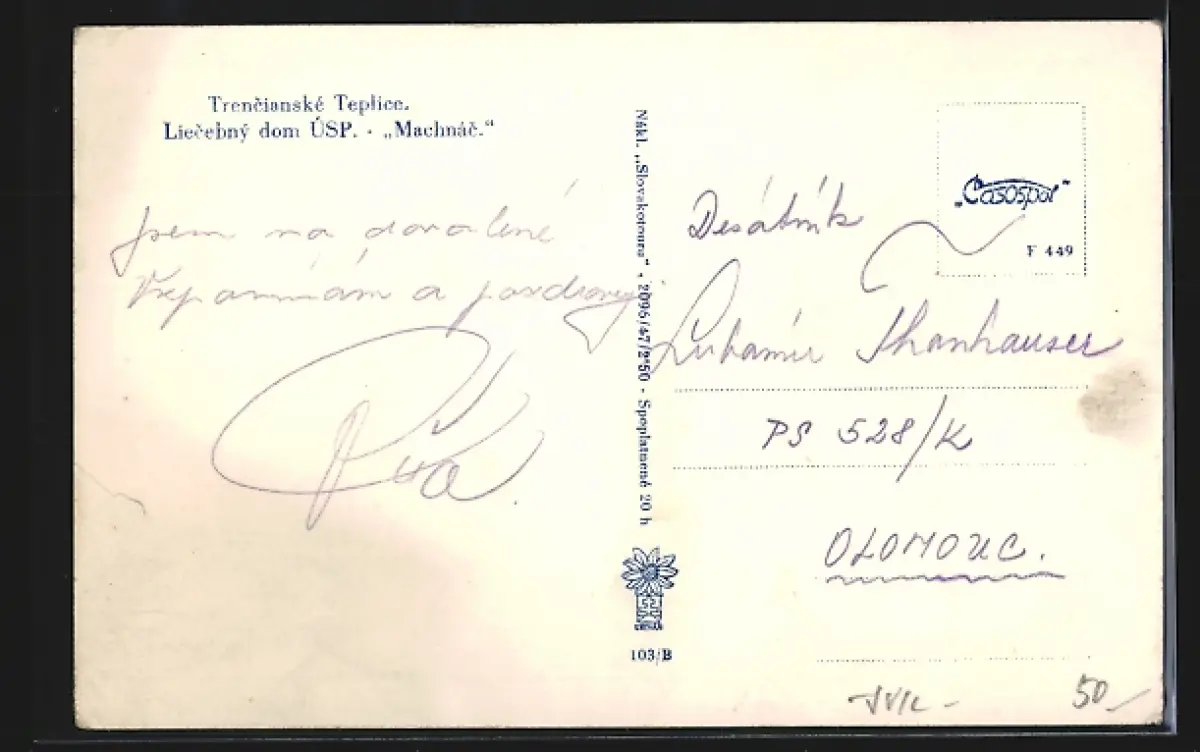 Trenčianské Teplice.
Liečebný dom ÚSP. - „Machnáč."
Jsem na dovolené
Vzpomínám a pozdravuji
Nákl. „Slovakotoura" • 2096/47/2·50 - Spoplatnené 20 h
103/B
„Časospol"
F 449
Desátník
Lubomír Thanhauser
PS 528/K
OLOMOUC.
50